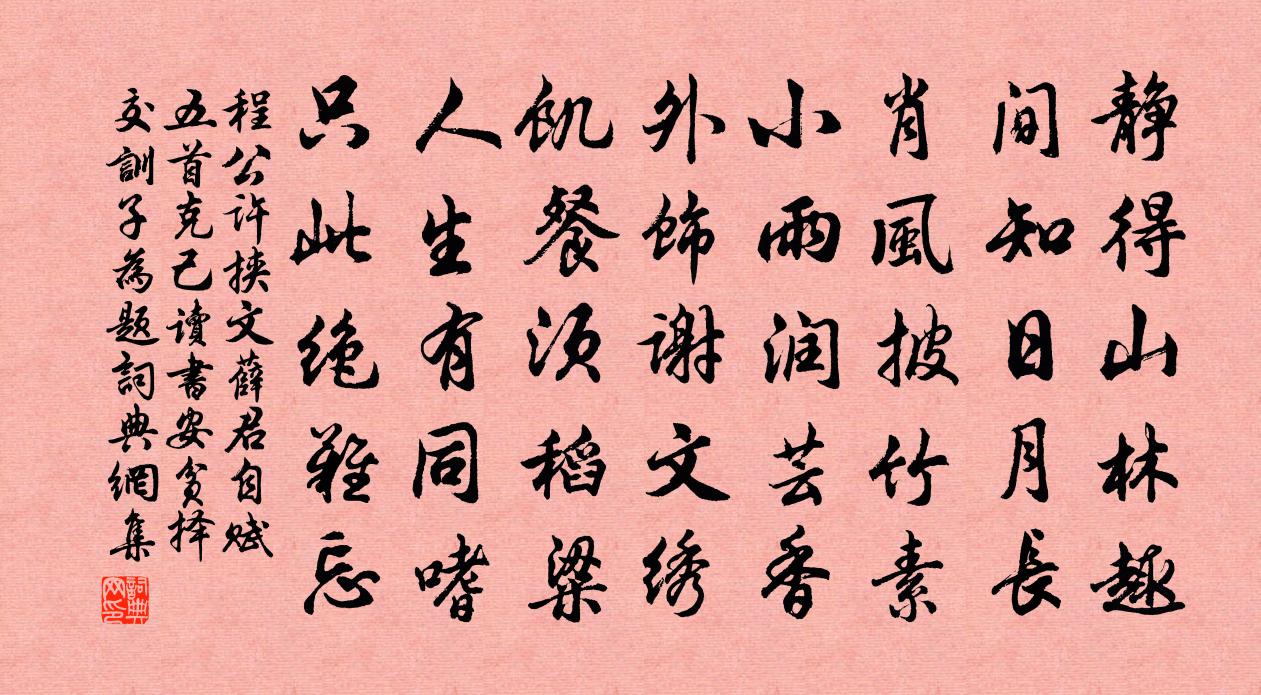 静得山林趣
间知日月長
肖風披竹素
小雨润芸香
外饰谢文绣
飢餐须稻粱
人生有同嗜
只此绝難忘
程公许挟文薛君自赋
五首克己讀書安贫择
交訓子為题詞典網集
詞典網印